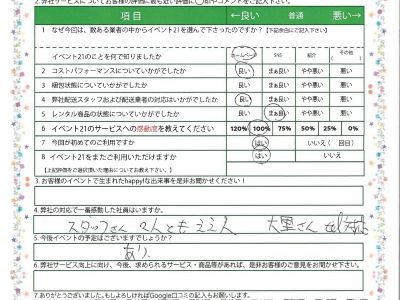 2.弊社サービスについてお客様の評価に最も近い評価に○印やコメントをご記入下さい。
項目 ←良い 普通 悪い→
1 なぜ今回は、数ある業者の中からイベント21を選んで下さったのですか？【下記余白にご記入下さい】
イベント21のことを何で知りましたか ホームページ SNS 紹介 その他
2 コストパフォーマンスについていかがでしたか 良い まぁ良い やや悪い 悪い
3 梱包状態についていかがでしたか 良い まぁ良い やや悪い 悪い
4 弊社配送スタッフおよび配送業者の対応はいかがでしたか 良い まぁ良い やや悪い 悪い
5 レンタル商品の状態についていかがでしたか 良い まぁ良い やや悪い 悪い
6 イベント21のサービスへの感動度を教えてください 120% 100% 75% 50% 25% 0%
7 今回が初めてのご利用ですか はい いいえ（ 回）
8 イベント21をまたご利用いただけますか はい いいえ
【上記評価をご選択頂いた理由についてお教え下さい。】
3.お客様のイベントで生まれたhappy!な出来事を是非お聞かせください！
4.弊社の対応で一番感動した社員はいますか。
スタッフさん 2人ともええ人 大里さん tel対応
5.今後イベントの予定はございますでしょうか？
あり、
6.弊社サービス向上に向け、今後、求められるサービス・商品等があれば、是非お客様のご意見をお聞かせ下さい。
7.ありがとうございました。もしよろしければGoogle口コミの記入もお願いします。